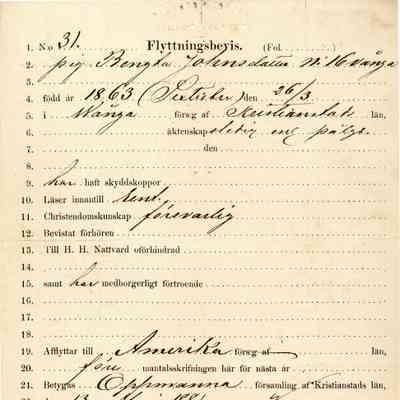 1. No 31. Flyttningsbevis. (Fol. )
2. pig Bengta Johnsdotter No 16 Vånga
3.
4. född år 1863 (Sextitre) den 26/3
5. i Wånga förs:g af Kristianstads län,
6. äktenskaps ledig enl
7. den
8.
9. har haft skyddskoppor
10. Läser innantill rent
11. Christendomskunskap försvarlig
12. Bevistat förhören
13. Till H. H. Nattvard oförhindrad
14.
15. samt har medborgerligt förtroende
16.
17.
18.
19. Afflyttar till Amerika förs:g af län,
20. före mantalsskrifningen här för nästa år
21. Betygas Oppmanna församling af Kristianstads län,
den 13 Maj 1881